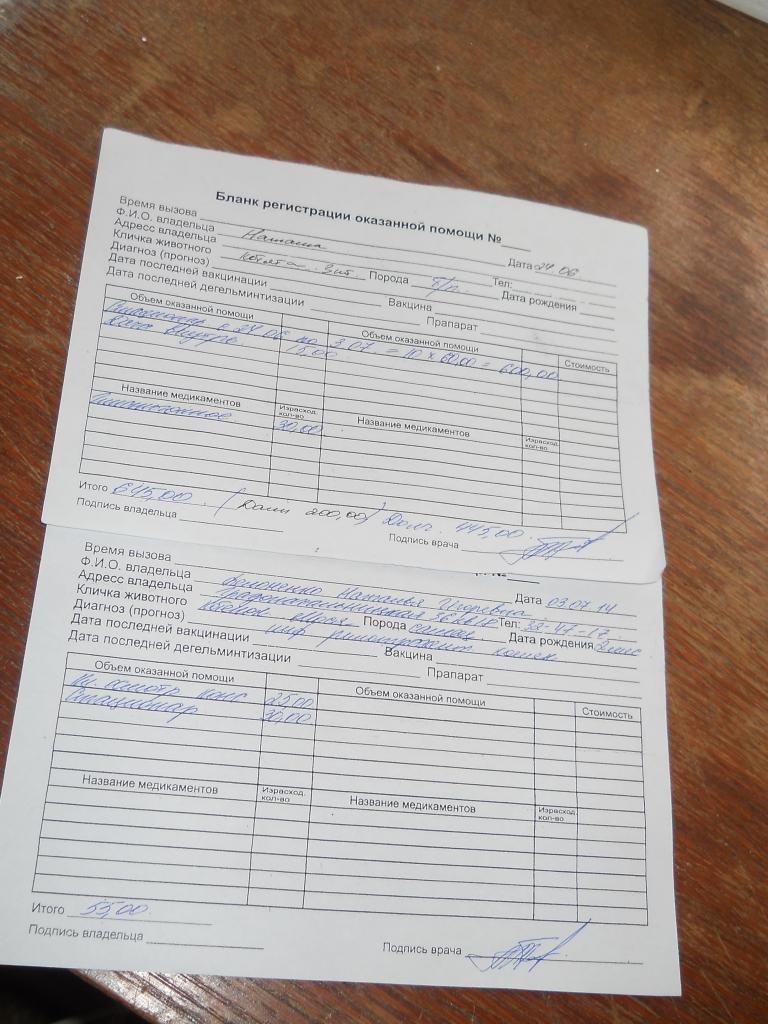 Бланк регистрации оказанной помощи №
Время вызова
Ф.И.О. владельца Наташа Дата 24.06
Адресс владельца Тел:
Кличка животного котята 3шт. Порода б/п. Дата рождения
Диагноз (прогноз)
Дата последней вакцинации Вакцина
Дата последней дегельминтизации Прапарат
Объем оказанной помощи Объем оказанной помощи Стоимость
Стационар с 24.06 по 3.07 = 10 х 60,00 = 600,00
15,00
Название медикаментов Израсход. кол-во Название медикаментов Израсход. кол-во
30,00
Итого 645,00 (Дали 200,00) Долг 445,00
Подпись владельца Подпись врача
Время вызова
Ф.И.О. владельца Наталья Игоревна Дата 03.07.14
Адресс владельца Тел: 
Кличка животного Порода Дата рождения 2мес
Диагноз (прогноз) кошек
Дата последней вакцинации Вакцина
Дата последней дегельминтизации Прапарат
Объем оказанной помощи Объем оказанной помощи Стоимость
осмотр конс 25,00
Стационар 30,00
Название медикаментов Израсход. кол-во Название медикаментов Израсход. кол-во
Итого 55,00
Подпись владельца Подпись врача